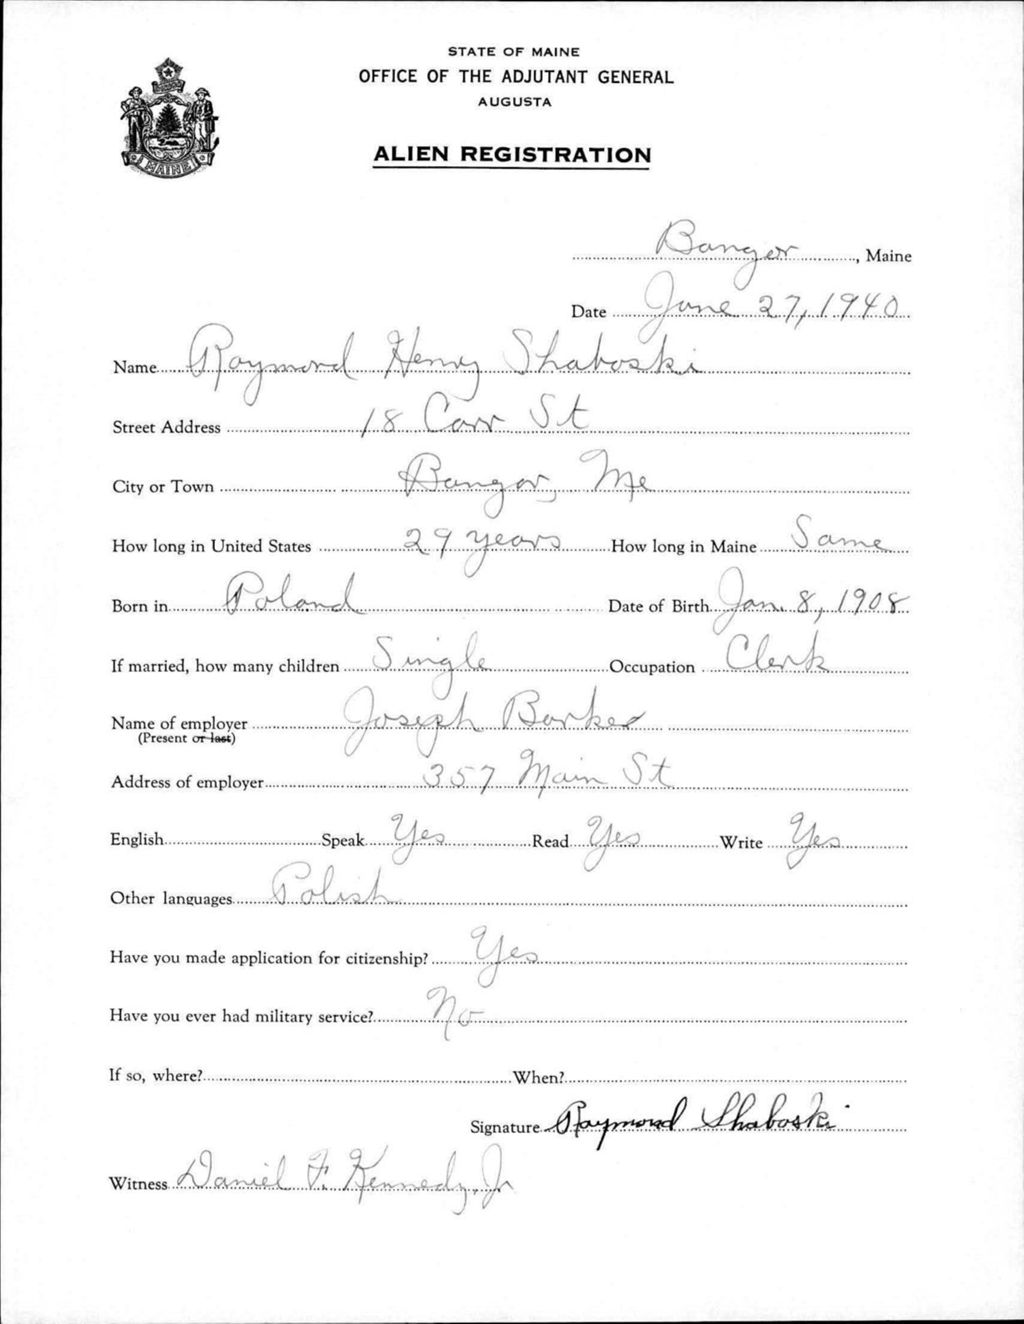 STATE OF MAINE
OFFICE OF THE ADJUTANT GENERAL
AUGUSTA
ALIEN REGISTRATION
MAINE
Bangor, Maine
Date June 27, 1940
Name Raymond Henry Shaboski
Street Address 18 Carr St
City or Town Bangor, Me
How long in United States 29 years How long in Maine Same
Born in Poland Date of Birth Jan. 8, 1908
If married, how many children Single Occupation Clerk
Name of employer Joseph Barker
(Present or last)
Address of employer 357 Main St
English Speak Yes Read Yes Write Yes
Other languages Polish
Have you made application for citizenship? Yes
Have you ever had military service? No
If so, where? When?
Signature Raymond Shaboski
Witness Daniel F. Kennedy, Jr